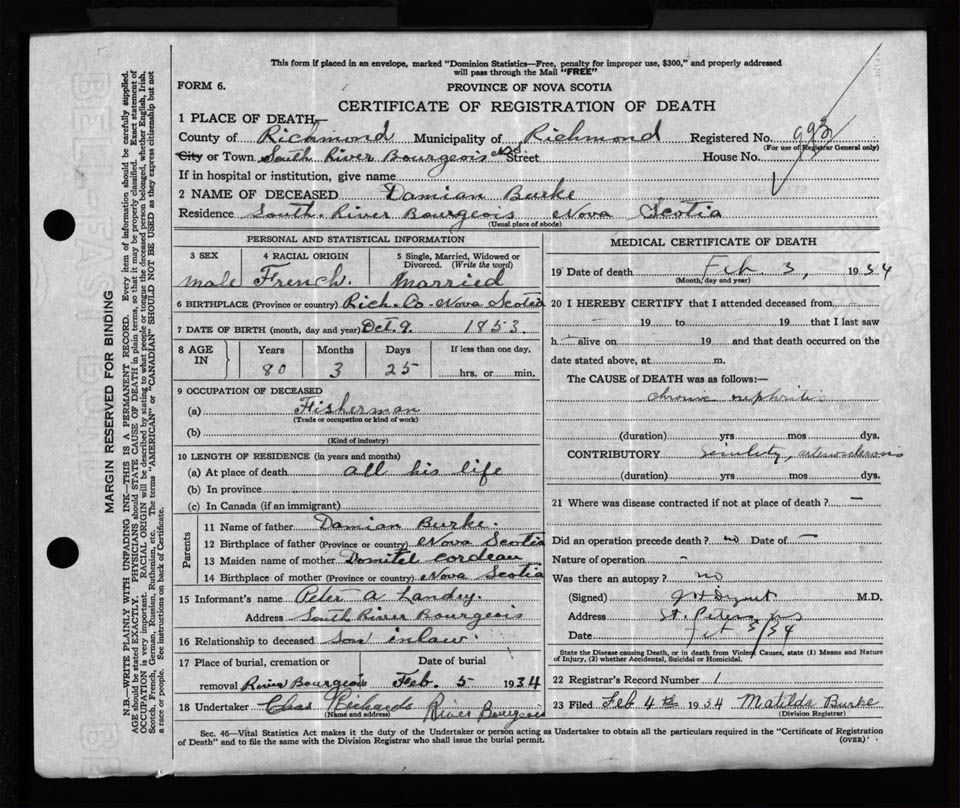 This form if placed in an envelope, marked "Dominion Statistics—Free, penalty for improper use, $300," and properly addressed
will pass through the Mail "FREE"
FORM 6.
PROVINCE OF NOVA SCOTIA
CERTIFICATE OF REGISTRATION OF DEATH
1 PLACE OF DEATH—
County of Richmond Municipality of Richmond Registered No. 993
(For use of Registrar General only)
City or Town South River Bourgeois N.S. Street House No.
If in hospital or institution, give name
2 NAME OF DECEASED Damian Burke
Residence South River Bourgeois Nova Scotia
(Usual place of abode)
PERSONAL AND STATISTICAL INFORMATION
3 SEX 4 RACIAL ORIGIN 5 Single, Married, Widowed or Divorced. (Write the word)
male French. Married
6 BIRTHPLACE (Province or country) Rich. Co. Nova Scotia
7 DATE OF BIRTH (month, day and year) Oct. 9. 1853.
8 AGE IN Years Months Days If less than one day.
80 3 25 hrs. or min.
9 OCCUPATION OF DECEASED
(a) Fisherman
(Trade or occupation or kind of work)
(b)
(Kind of industry)
10 LENGTH OF RESIDENCE (in years and months)
(a) At place of death all his life
(b) In province
(c) In Canada (if an immigrant)
Parents
11 Name of father Damian Burke.
12 Birthplace of father (Province or country) Nova Scotia
13 Maiden name of mother Domitel Cordeau
14 Birthplace of mother (Province or country) Nova Scotia
15 Informant's name Peter A Landry.
Address South River Bourgeois
16 Relationship to deceased son inlaw.
17 Place of burial, cremation or Date of burial
removal River Bourgeois Feb. 5 1934
18 Undertaker Chas Richards River Bourgeois
(Name and address)
MEDICAL CERTIFICATE OF DEATH
19 Date of death Feb. 3, 1934
(Month, day and year)
20 I HEREBY CERTIFY that I attended deceased from
19 to 19 that I last saw
h alive on 19 and that death occurred on the
date stated above, at m.
The CAUSE of DEATH was as follows:—
chronic nephritis
(duration) yrs. mos. dys.
CONTRIBUTORY senility, arteriosclerosis
(duration) yrs. mos. dys.
21 Where was disease contracted if not at place of death? —
Did an operation precede death? no Date of —
Nature of operation —
Was there an autopsy? no
(Signed) M.D.
Address St. Peters, NS
Date Feb 3/34
State the Disease causing Death, or in death from Violent Causes, state (1) Means and Nature
of Injury, (2) whether Accidental, Suicidal or Homicidal.
22 Registrar's Record Number 1
23 Filed Feb 4th 1934 Matilda Burke
(Division Registrar)
Sec. 46—Vital Statistics Act makes it the duty of the Undertaker or person acting as Undertaker to obtain all the particulars required in the "Certificate of Registration
of Death" and to file the same with the Division Registrar who shall issue the burial permit. (OVER)
MARGIN RESERVED FOR BINDING
N.B.—WRITE PLAINLY WITH UNFADING INK—THIS IS A PERMANENT RECORD. Every item of information should be carefully supplied.
AGE should be stated EXACTLY. PHYSICIANS should STATE CAUSE OF DEATH in plain terms, so that it may be properly classified. Exact statement of
OCCUPATION is very important. RACIAL ORIGIN will be described by stating to what people or tongue the deceased person belonged, whether English, Irish,
Scotch, French, German, Russian, Ruthenian, etc. The terms "AMERICAN" or "CANADIAN" SHOULD NOT BE USED as they express citizenship but not
a race or people. See instructions on back of Certificate.